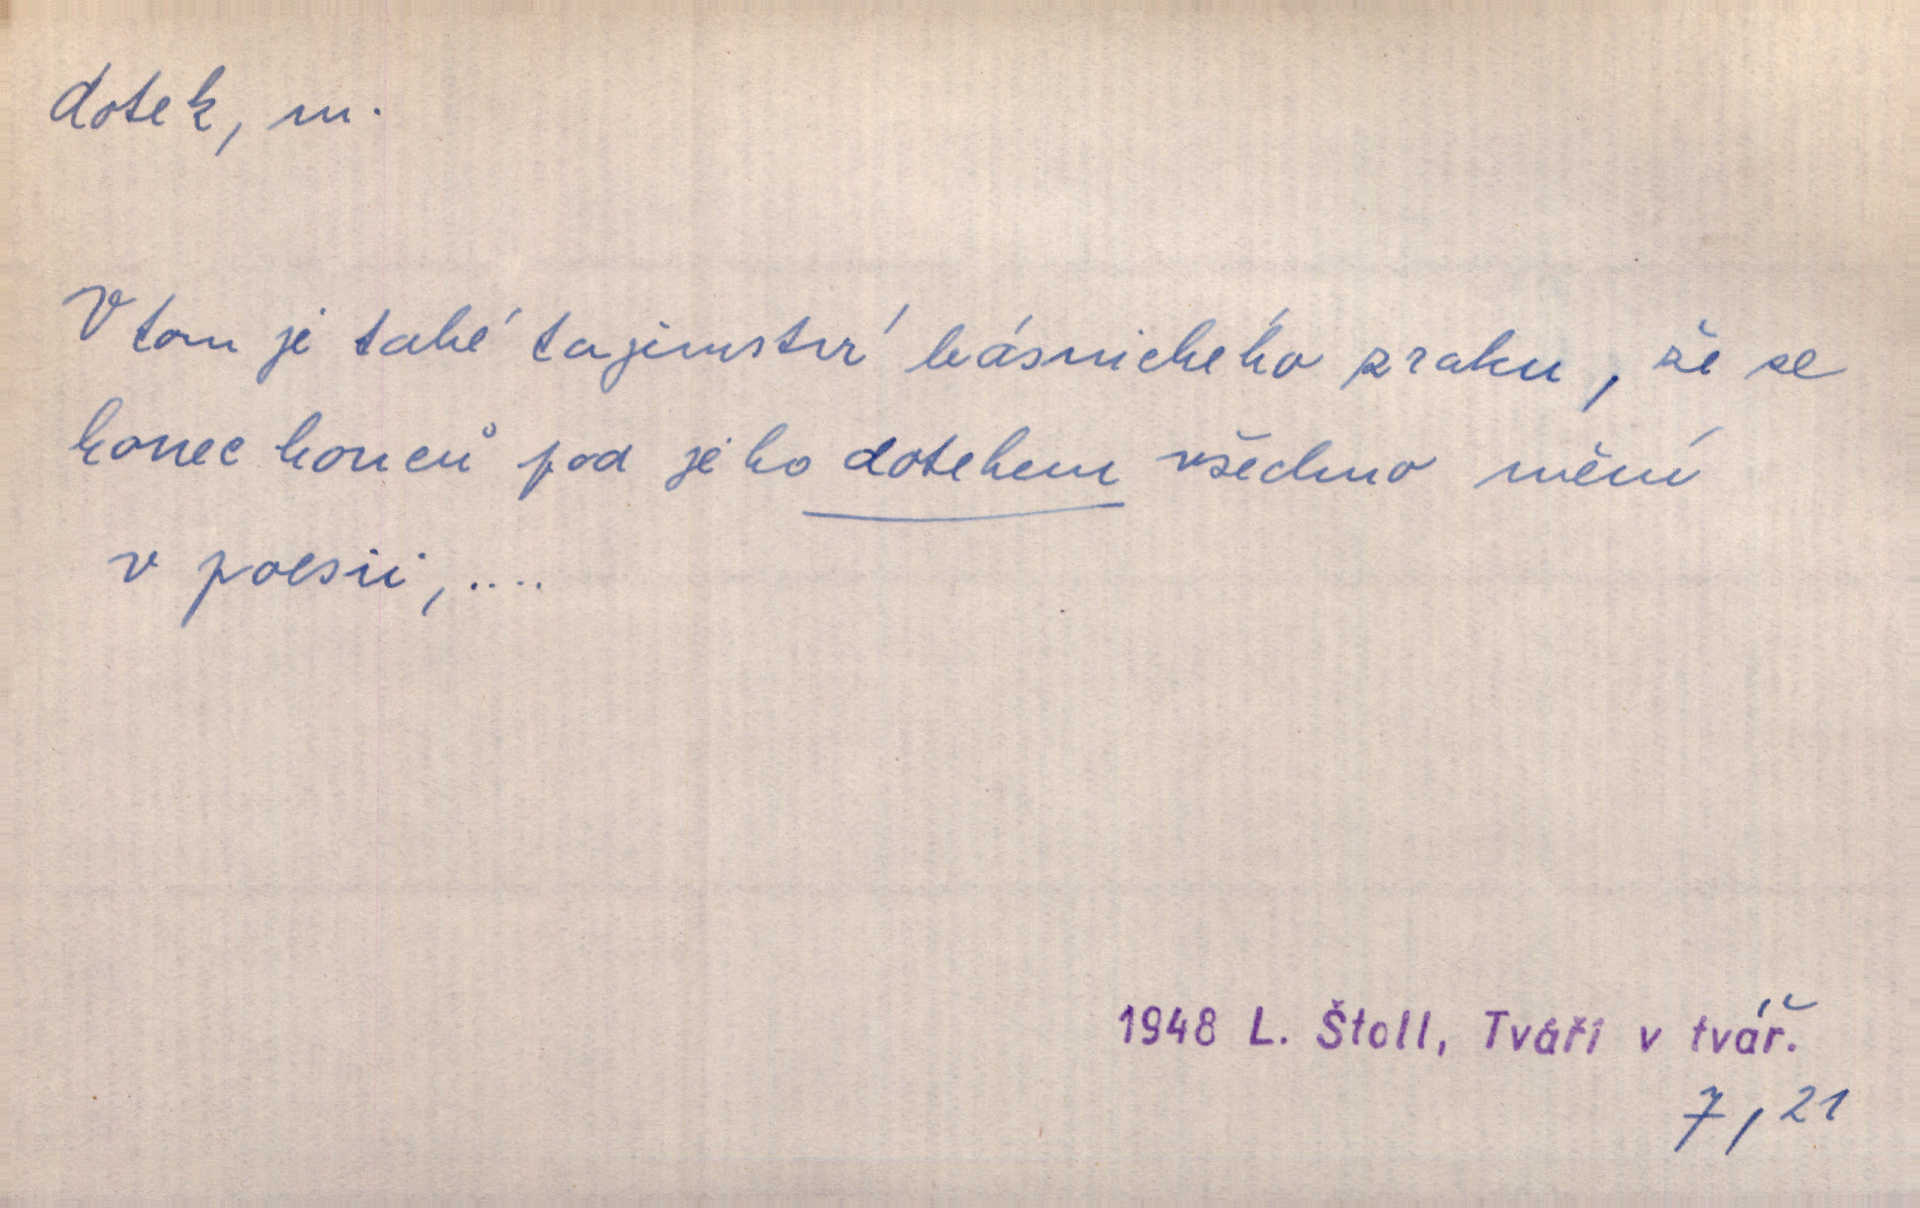 dotek, m.
V tom je také tajemství básnického zraku, že se
konec konců pod jeho dotekem všechno mění
v poesii, ....
1948 L. Štoll, Tváří v tvář.
7, 21